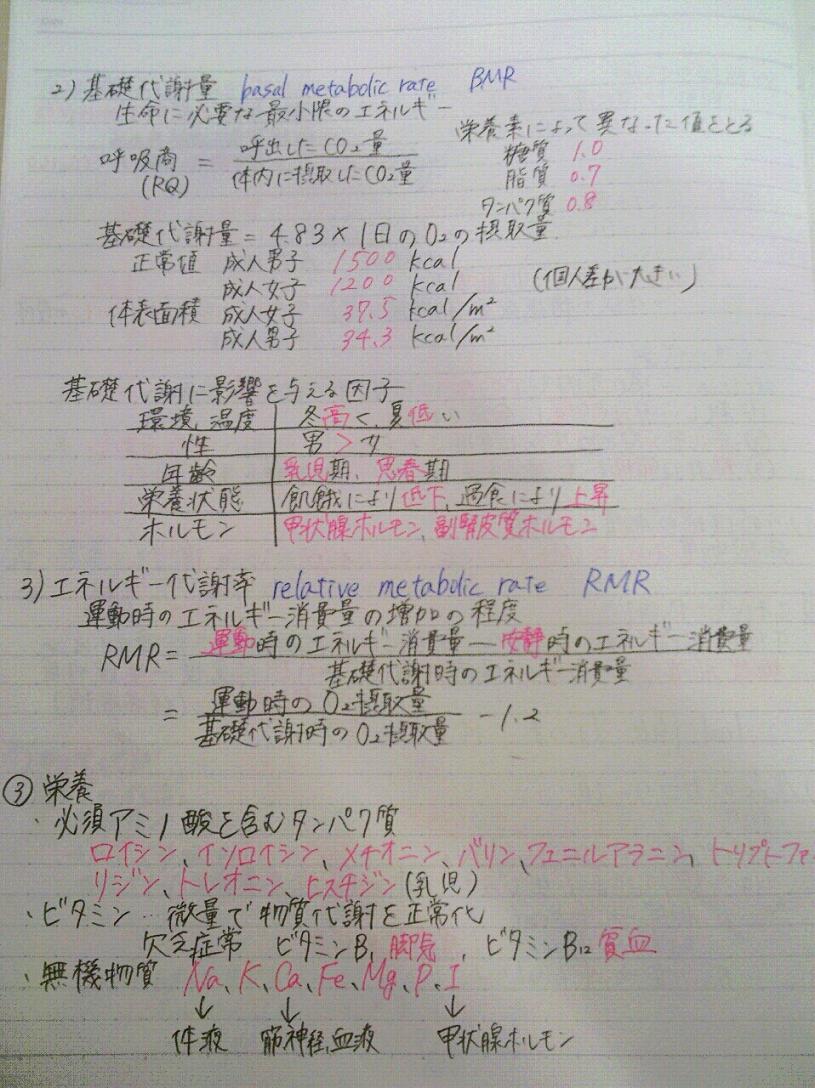 2) 基礎代謝量 basal metabolic rate BMR
生命に必要な最小限のエネルギー
呼吸商 = 呼出したCO₂量
(RQ) 体内に摂取したCO₂量
栄養素によって異なった値をとる
糖質 1.0
脂質 0.7
タンパク質 0.8
基礎代謝量 = 4.83 × 1日のO₂の摂取量
正常値 成人男子 1500 kcal
成人女子 1200 kcal (個人差が大きい)
体表面積 成人女子 37.5 kcal/m²
成人男子 34.3 kcal/m²
基礎代謝に影響を与える因子
環境、温度 冬高く、夏低い
性 男 > 女
年齢 乳児期、思春期
栄養状態 飢餓により低下、過食により上昇
ホルモン 甲状腺ホルモン、副腎皮質ホルモン
3) エネルギー代謝率 relative metabolic rate RMR
運動時のエネルギー消費量の増加の程度
RMR = 運動時のエネルギー消費量 － 安静時のエネルギー消費量
基礎代謝時のエネルギー消費量
= 運動時のO₂摂取量
基礎代謝時のO₂摂取量 - 1.2
③ 栄養
・必須アミノ酸を含むタンパク質
ロイシン、イソロイシン、メチオニン、バリン、フェニルアラニン、トリプトファ
リジン、トレオニン、ヒスチジン(乳児)
・ビタミン…微量で物質代謝を正常化
欠乏症常 ビタミンB₁ 脚気、ビタミンB₁₂ 貧血
・無機物質 Na、K、Ca、Fe、Mg、P、I
↓ ↓ ↓
体液 筋神経,血液 甲状腺ホルモン